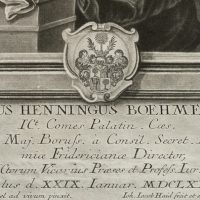 US HENNINGUS BOEHME
ICt. Comes Palatin. Cæs.
Maj. Boruss. a Consil. Secret.
miæ Fridericianæ Director,
Vicinius Præses et Profess. Iur
tus d. XXIX. Ianuar. MDCLXX
el ad vivum pinxit.
Joh. Iacob Haid